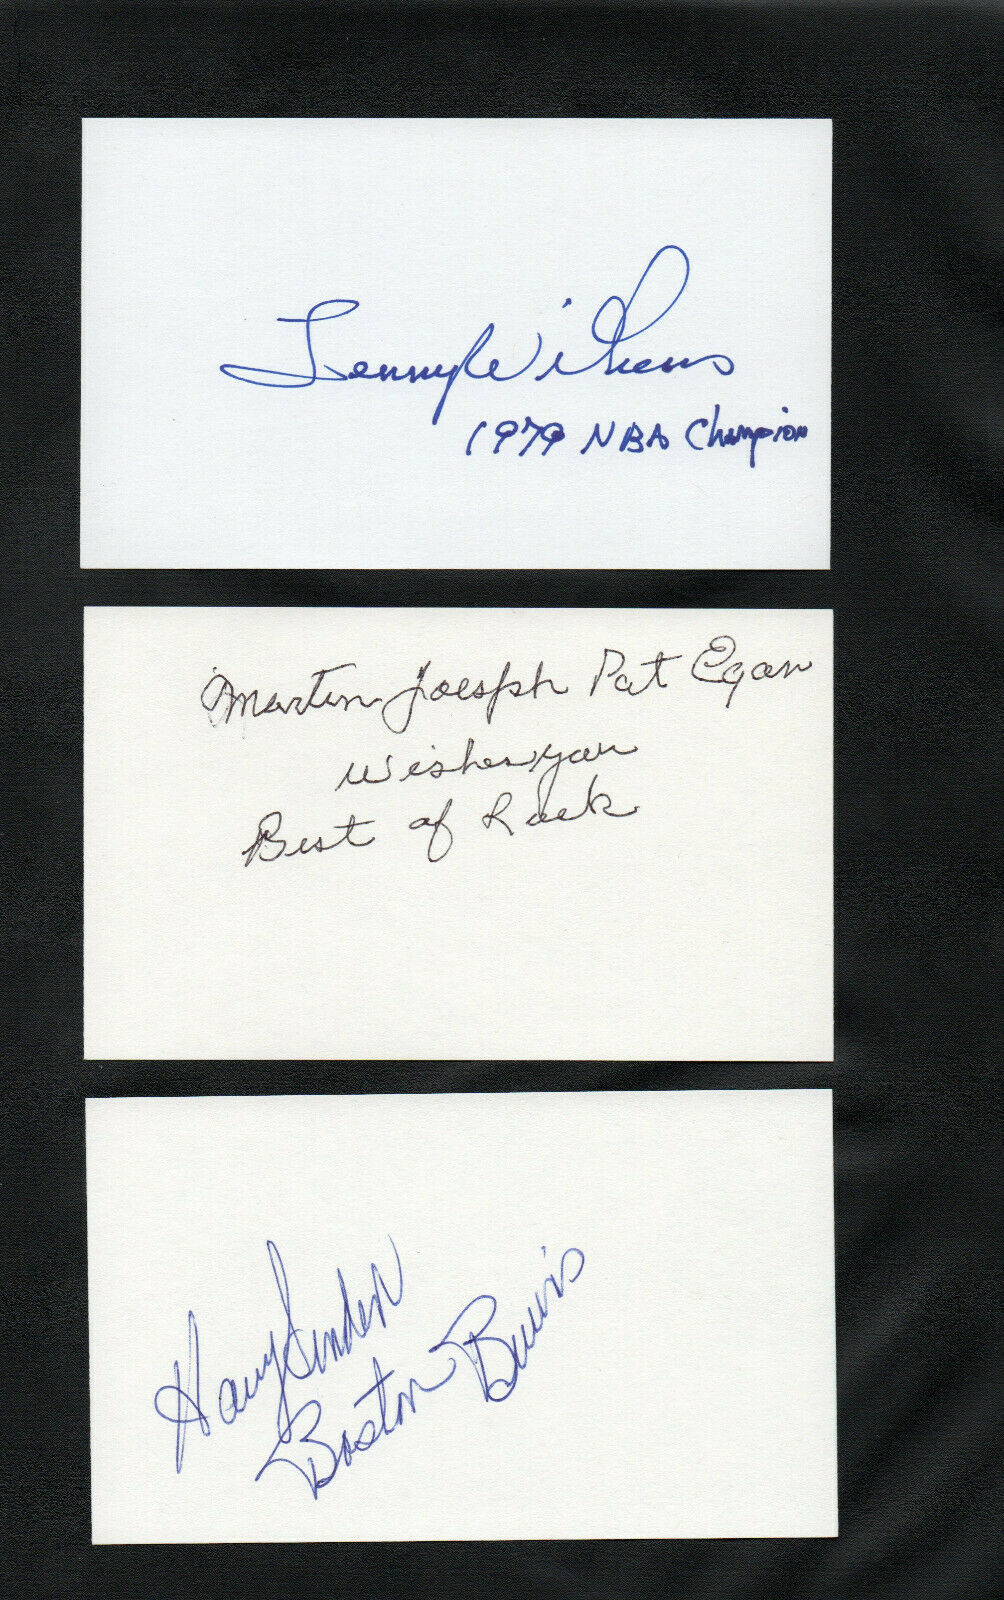 Lenny Wilkens
1979 NBA Champion
Martin Joesph Pat Egan
Wishes you
Best of Luck
Harry Sinden
Boston Bruins